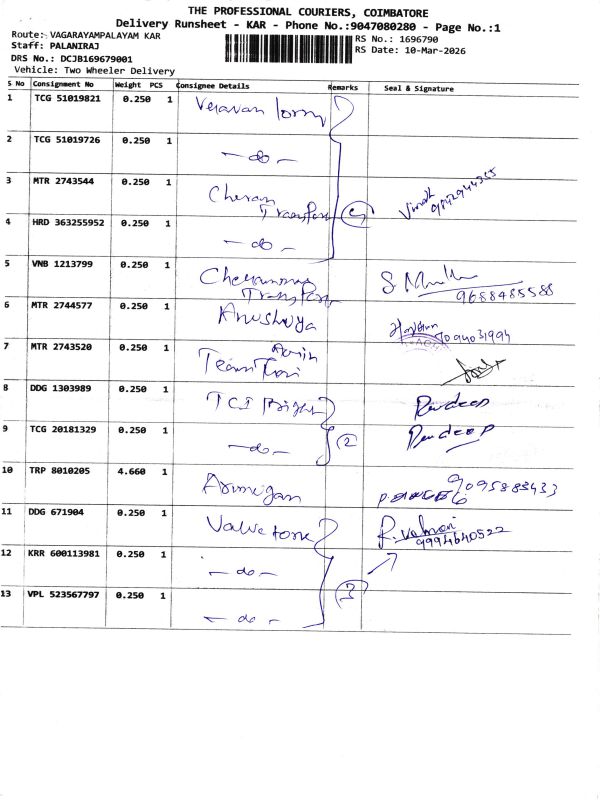 THE PROFESSIONAL COURIERS, COIMBATORE
Delivery Runsheet - KAR - Phone No.:9047080280 - Page No.:1
Route: VAGARAYAMPALAYAM KAR
Staff: PALANIRAJ
DRS No.: DCJB169679001
Vehicle: Two Wheeler Delivery
RS No.: 1696790
RS Date: 10-Mar-2026
S No Consignment No Weight PCS Consignee Details Remarks Seal & Signature
1 TCG 51019821 0.250 1
2 TCG 51019726 0.250 1 - do -
3 MTR 2743544 0.250 1 Cheran Transport
4 HRD 363255952 0.250 1 - do -
5 VNB 1213799 0.250 1 Transport 9688485588
6 MTR 2744577 0.250 1
7 MTR 2743520 0.250 1
8 DDG 1303989 0.250 1 TCI Pradeep
9 TCG 20181329 0.250 1 - do - 2 Pradeep
10 TRP 8010205 4.660 1 Arumugan
11 DDG 671904 0.250 1 9994640522
12 KRR 600113981 0.250 1 - do -
13 VPL 523567797 0.250 1 - do - 3